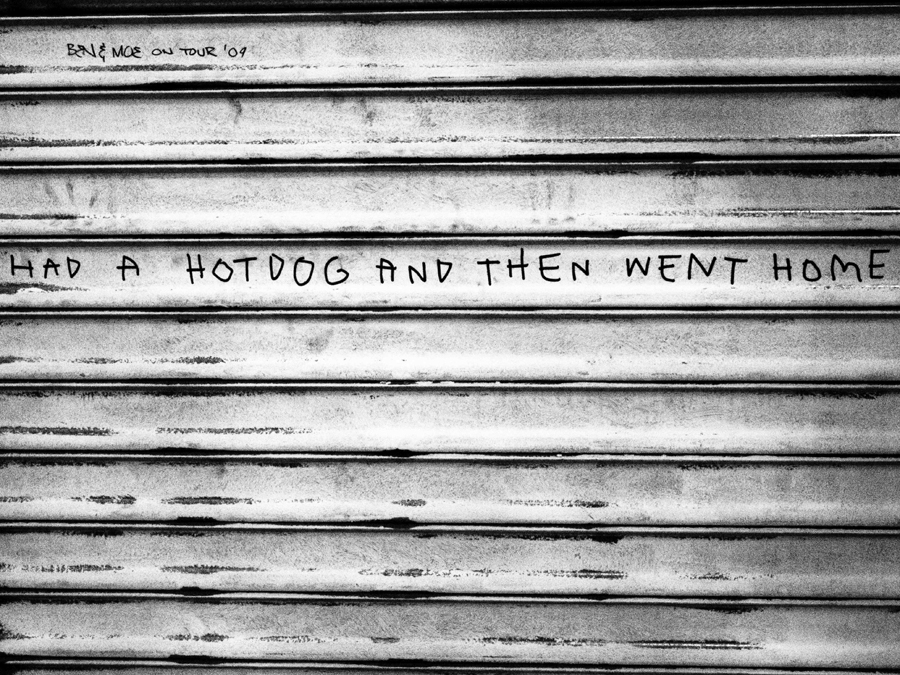 BEN & MOE ON TOUR '09
HAD A HOTDOG AND THEN WENT HOME